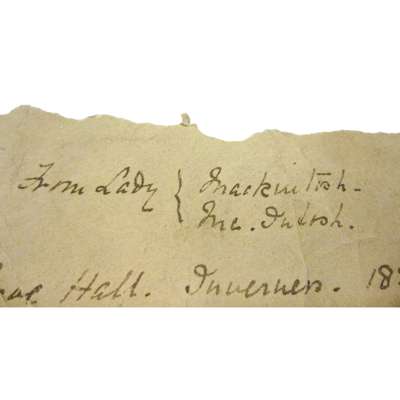 From Lady { Mackintosh-
Mc. Intosh.
Hall. Inverness. 18